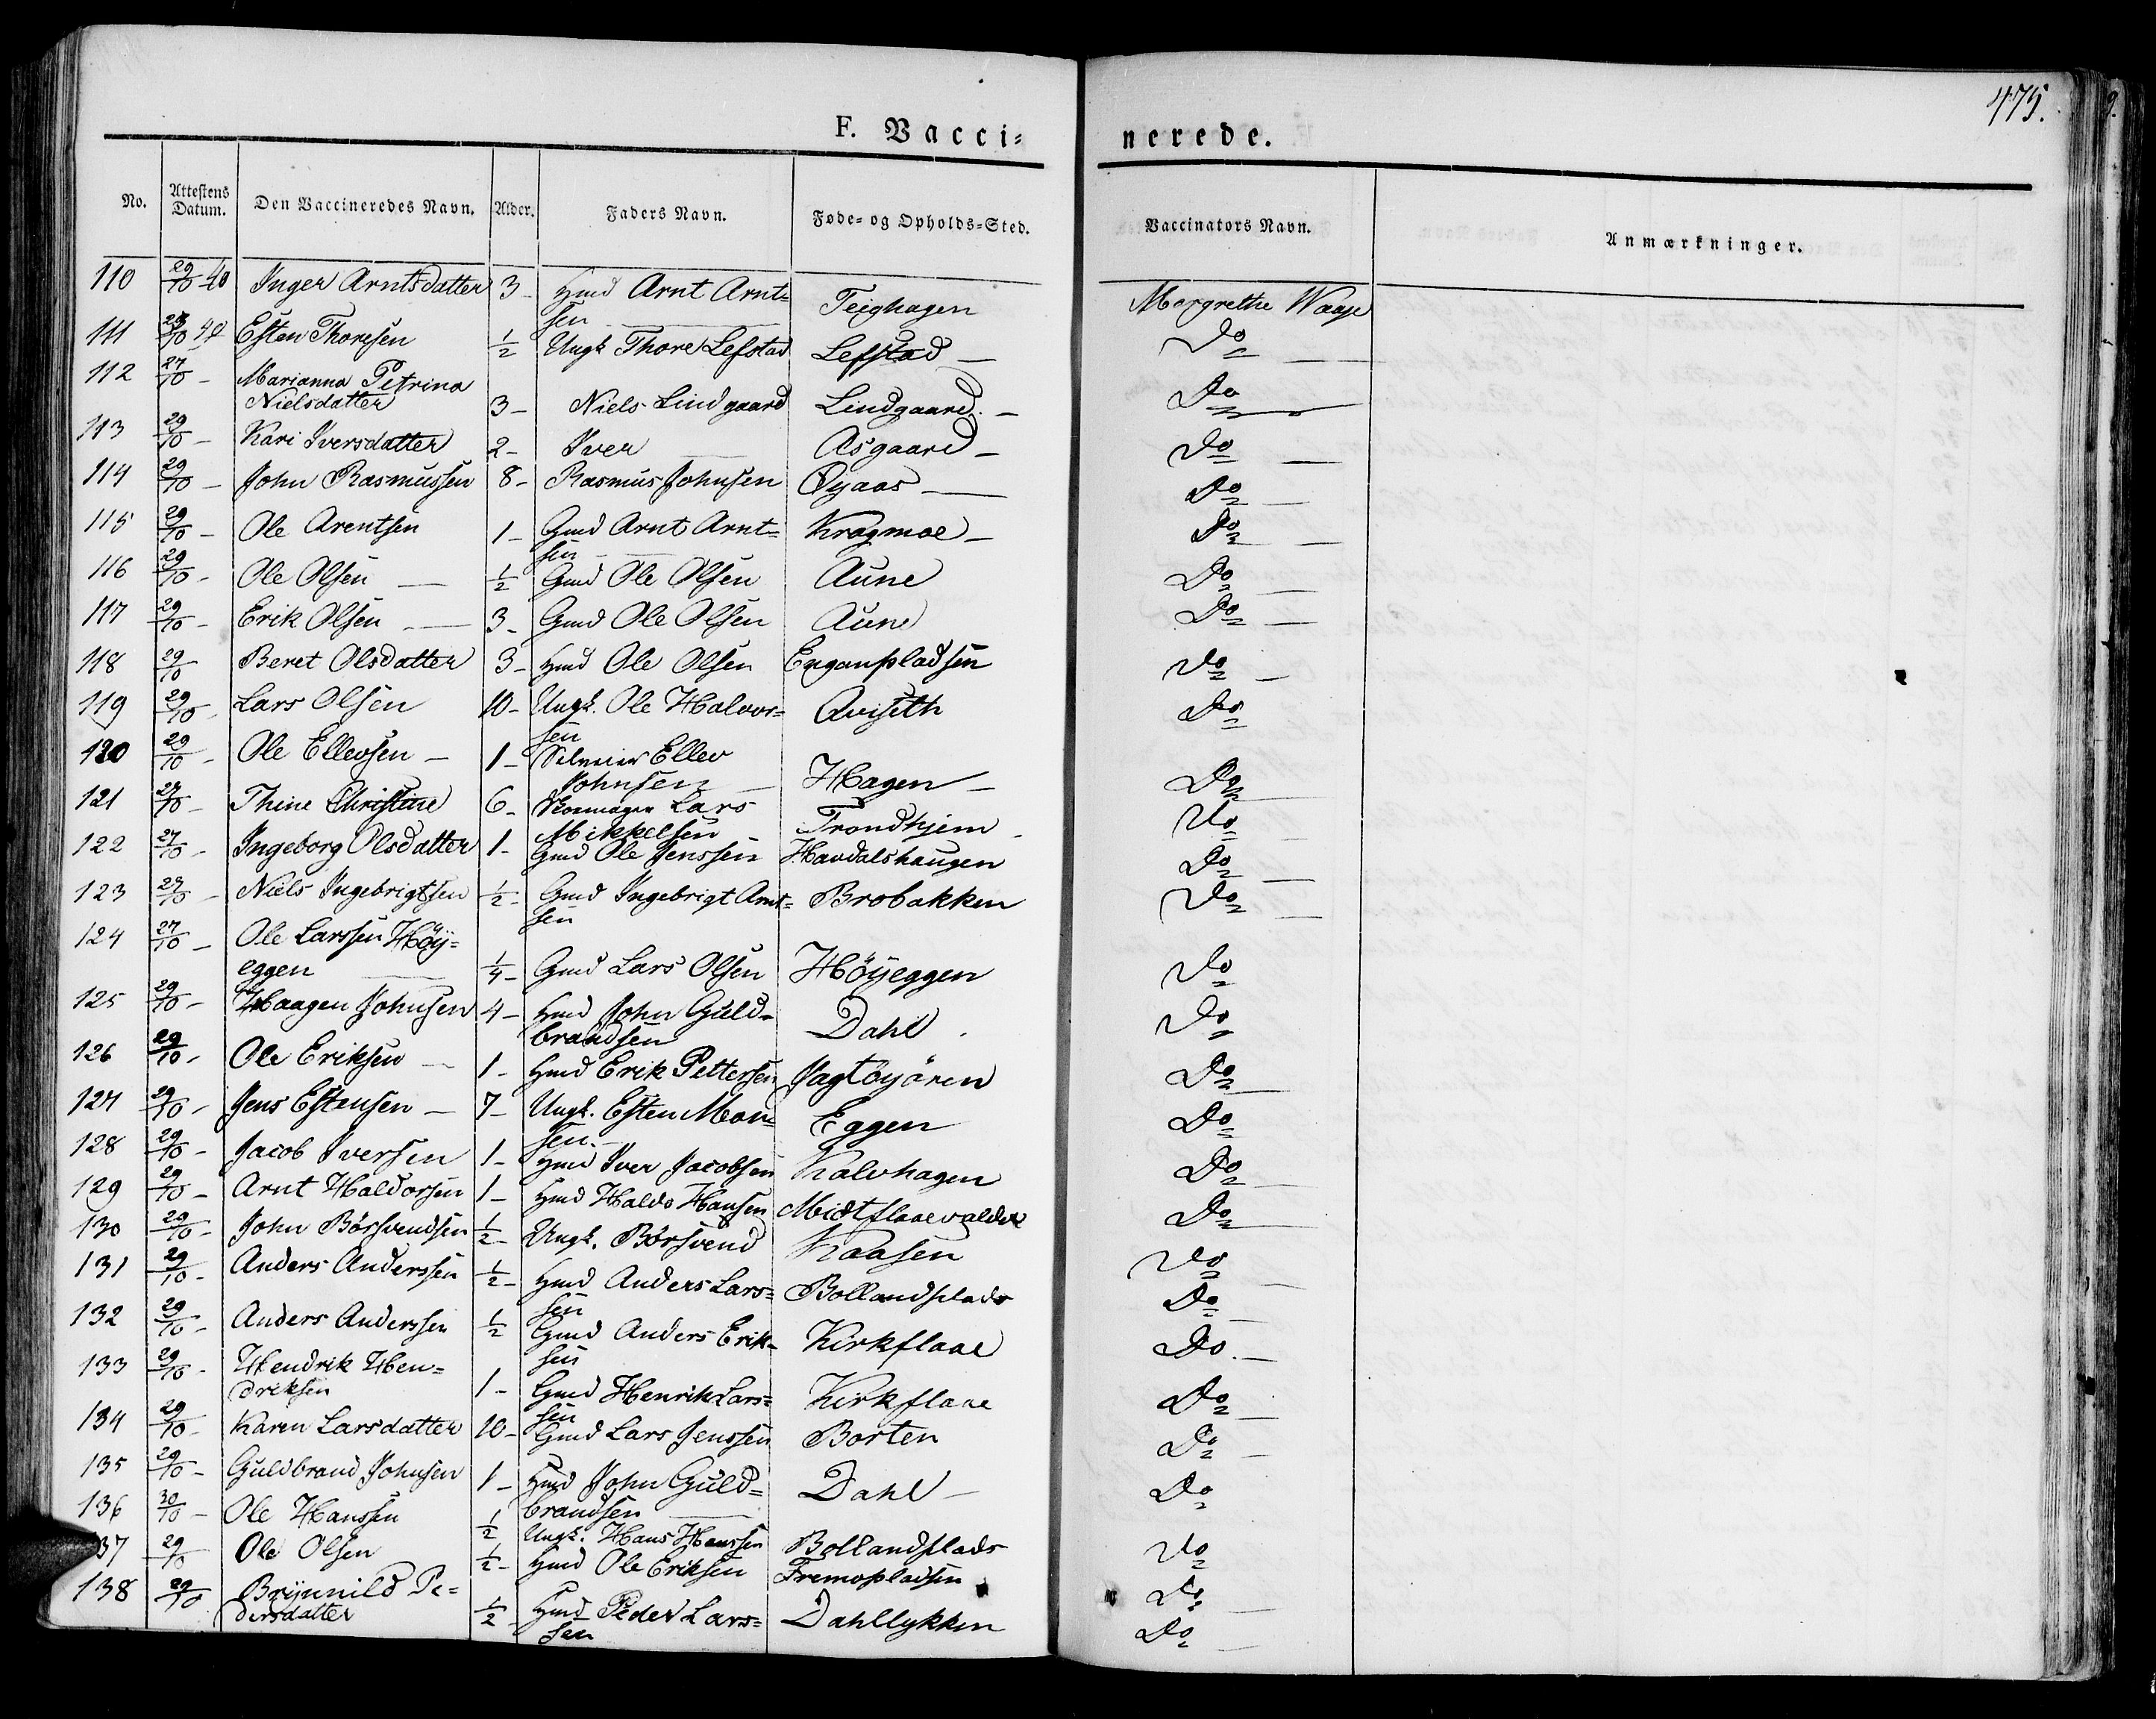 475.
F. Vacci-
nerede.
No. Attestens Datum. Den Vaccineredes Navn. Alder. Faders Navn. Føde- og Opholds-Sted. Vaccinators Navn. Anmærkninger.
110 29/10 40 Inger Arntsdatter 3 - Hmd Arnt Arnt=
sen Teighagen Margrethe Waage
111 28/10 40 Esten Thoresen 1/2 Ungk Thore Lefstad Lefstad - Do
112 27/10 - Marianna Petrina
Nielsdatter 3 - Niels Lindgaard Lindgaard - Do
113 29/10 - Kari Iversdatter 2 - Iver Asgaard - Do
114 29/10 - John Rasmussen 8 - Rasmus Johnsen Øyaas - Do
115 29/10 - Ole Arentsen 1 - Gmd Arnt Arnt=
sen Kragmoe - Do
116 29/10 - Ole Olsen 1/2 Gmd Ole Olsen Aune Do
117 29/10 - Erik Olsen 3 - Gmd Ole Olsen Aune Do
118 29/10 Beret Olsdatter 3 - Hmd Ole Olsen Enganpladsen Do
119 29/10 - Lars Olsen 10 - Ungk. Ole Halvor=
sen Aviseth Do
120 29/10 - Ole Ellevsen - 1 - Ellev
Johnsen Hagen - Do
121 27/10 - Thine Christine 6 - Lars
Mikkelsen Trondhjem Do
122 27/10 - Ingeborg Olsdatter 1 - Gmd Ole Jenssen Havdalshaugen Do
123 27/10 - Niels Ingebrigtsen 1/2 - Gmd Ingebrigt Arnt=
sen Brobakken Do
124 27/10 - Ole Larssen Höy=
eggen 1/4 - Gmd Lars Olsen Höyeggen Do
125 29/10 - Haagen Johnsen 4 - Hmd John Guld=
brandsen Dahl Do
126 29/10 - Ole Eriksen 1 - Hmd Erik Pettersen Jagtöyören Do
127 29/10 - Jens Estensen - 7 - Ungk. Esten Mon=
sen. Eggen Do
128 29/10 - Jacob Iversen 1 - Hmd Iver Jacobsen Kalvhagen Do
129 29/10 - Arnt Haldorsen 1 - Hmd Haldo Hansen Midtflaaevaldet Do
130 29/10 - John Börsvendsen 1/2 - Ungk. Börsvend Kaasen Do
131 29/10 - Anders Anderssen 1/2 - Hmd Anders Lars=
sen Bollandplads Do
132 29/10 - Anders Anderssen 1/2 Gmd Anders Erik=
sen Kirkflaae Do. -
133 29/10 - Hendrik Hen=
driksen 1 - Gmd Henrik Lars=
sen Kirkflaae Do
134 29/10 - Karen Larsdatter 10 - Gmd Lars Jenssen Borten Do
135 29/10 - Guldbrand Johnsen 1 - Hmd John Guld=
brandsen Dahl - Do
136 30/10 - Ole Hanssen 1/2 Ungk. Hans Hanssen Bollandplads Do
37 29/10 Ole Olsen 1/2 - Hmd Ole Eriksen Fremopladsen Do
138 29/10 Brynnild Pe=
dersdatter 1/2 - Hmd Peder Lars=
sen Dahllykken Do